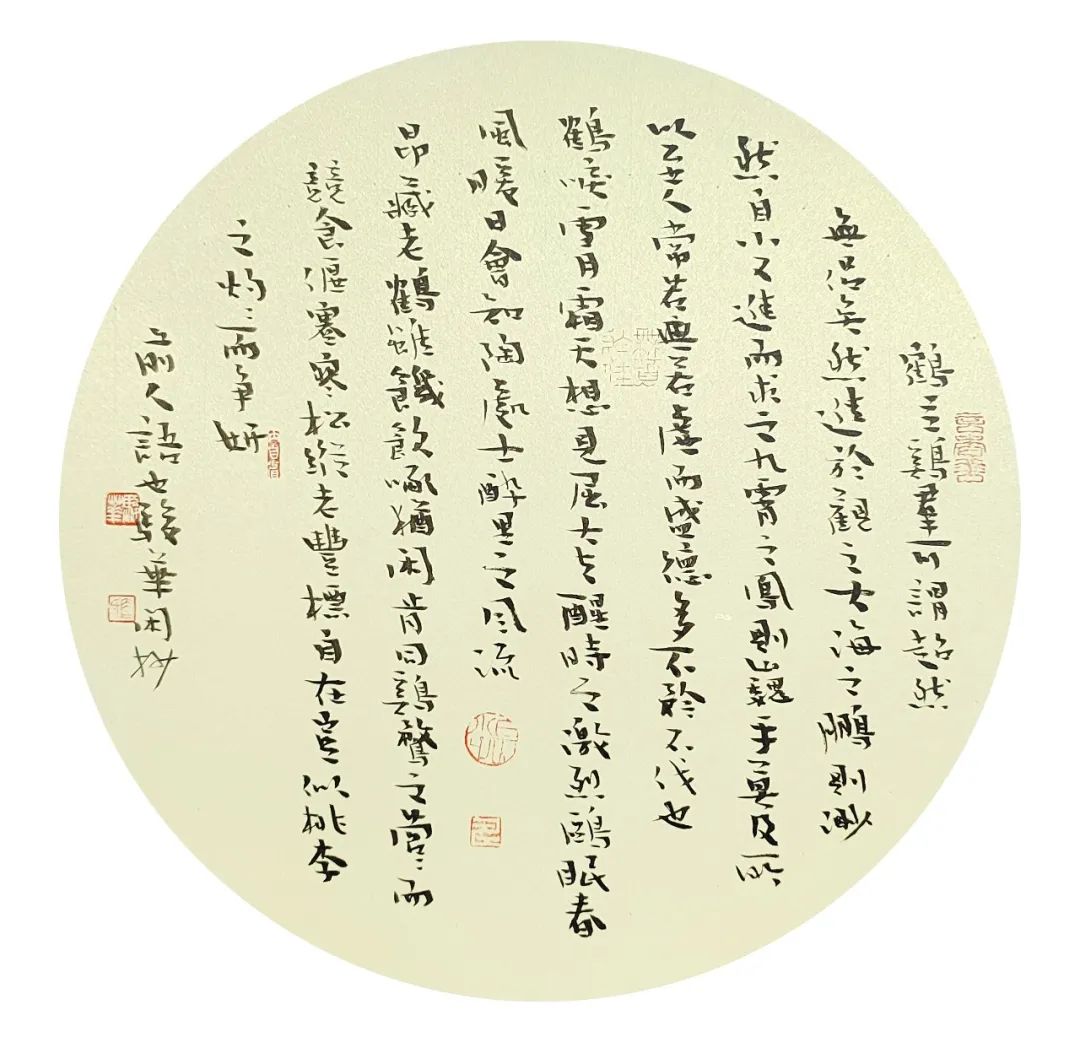 鶴立鷄羣可謂超然
無侣矣然進於觀之大海之鵬則渺
然自小又進而求之九霄之鳳則巍乎莫及所
以至人常若無若虛而盛德多不矜不伐也
鶴唳雪月霜天想見屈大夫醒時之激烈鷗眠春
風暖日會知陶處士醉里之風流
昂藏老鶴雖饑飲啄猶闲肯同鷄鶩之營〻而
競食偃蹇寒松縱老豐標自在豈似桃李
之灼〻而争妍
前人語也駿華闲抄